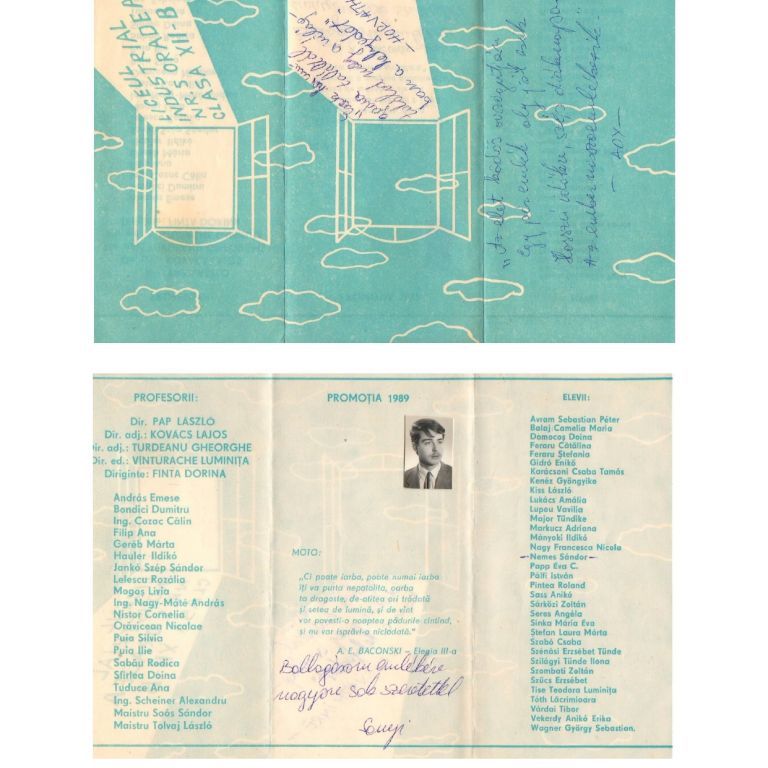 LICEUL
INDUSTRIAL
NR.5 ORADEA
CLASA XII-B
"Az élet ködös országútján
Egy pár emlék oly jól esik
Hosszú időkre, egy
Az ember
— ADY —
— HORVÁTH
PROFESORII:
Dir. PAP LÁSZLÓ
Dir. adj.: KOVÁCS LAJOS
Dir. adj.: TURDEANU GHEORGHE
Dir. ed.: VÎNTURACHE LUMINIȚA
Diriginte: FINTA DORINA
András Emese
Bondici Dumitru
Ing. Cozac Călin
Filip Ana
Geréb Márta
Hauler Ildikó
Jankó Szép Sándor
Lelescu Rozália
Mogoș Livia
Ing. Nagy-Máté András
Nistor Cornelia
Orăvicean Nicalae
Puia Silvia
Puia Ilie
Sabău Rodica
Sfîrlea Doina
Tuduce Ana
Ing. Scheiner Alexandru
Maistru Soós Sándor
Maistru Tolvaj László
PROMOȚIA 1989
MOTO:
"Ci poate iarba, poate numai iarba
îți va purta nepatolita, oarba
ta dragoste, de-atitea ori trădată
și setea de lumină, și de vînt
vor povesti-o noaptea pădurile cîntînd,
și nu var isprăvi-o niciodată."
A. E. BACONSKI – Elegia III-a
Ballagásom emlékére
nagyon sok szeretettel
Sanyi
ELEVII:
Avram Sebastian Péter
Balaj Camelia Maria
Domocoș Doina
Feraru Cătălina
Feraru Ștefania
Gidró Enikő
Karácsoni Csaba Tamás
Kenéz Gyöngyike
Kiss László
Lukács Amália
Lupou Vavilia
Major Tündike
Markucz Adriana
Mányoki Ildikó
Nagy Francesca Nicola
Nemes Sándor
Papp Éva C.
Pálfi István
Pintea Roland
Sass Anikó
Sárközi Zoltán
Seres Angéla
Sinka Mária Éva
Ștefan Laura Márta
Szabó Csaba
Szénási Erzsébet Tünde
Szilágyi Tünde Ilona
Szombati Zoltán
Szűcs Erzsébet
Tise Teodora Luminița
Tóth Lăcrimioara
Várdai Tibor
Vekerdy Anikó Erika
Wagner György Sebastian.